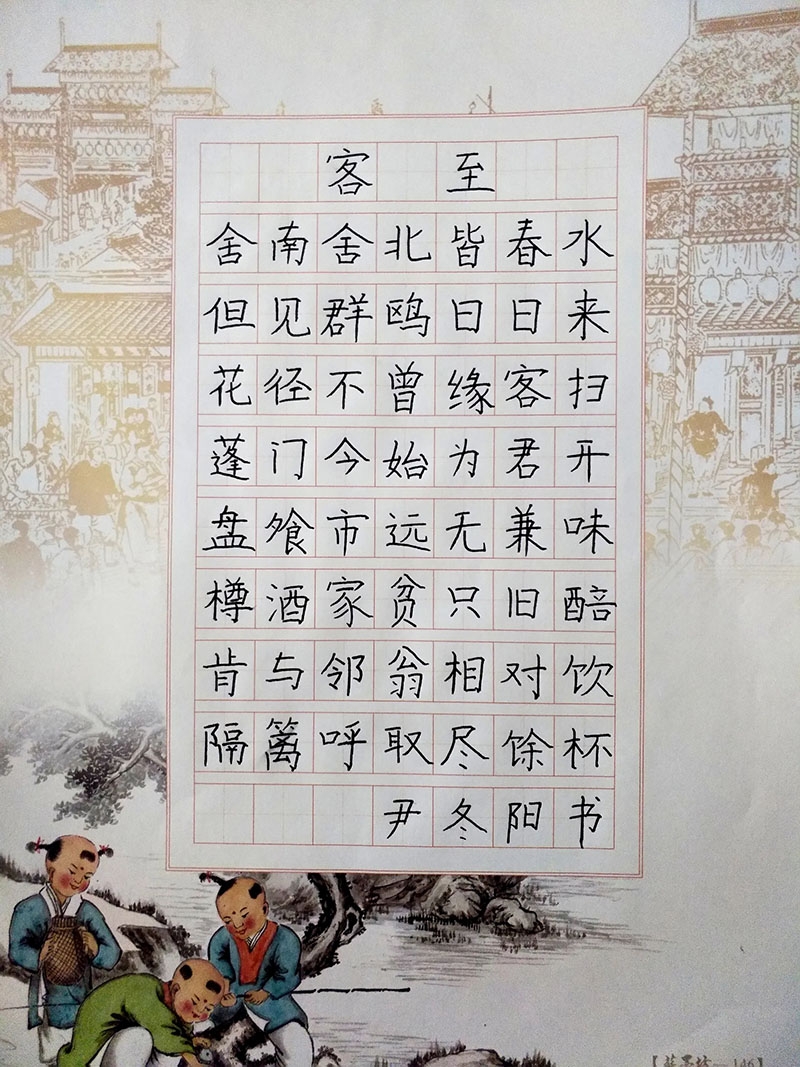 客至
舍南舍北皆春水
但见群鸥日日来
花径不曾缘客扫
蓬门今始为君开
盘飧市远无兼味
樽酒家贫只旧醅
肯与邻翁相对饮
隔篱呼取尽馀杯
尹冬阳书